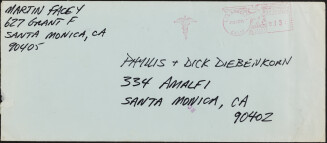 MARTIN FACEY
627 GRANT F
SANTA MONICA, CA
90405
PHYLLIS + DICK DIEBENKORN
334 AMALFI
SANTA MONICA, CA
90402